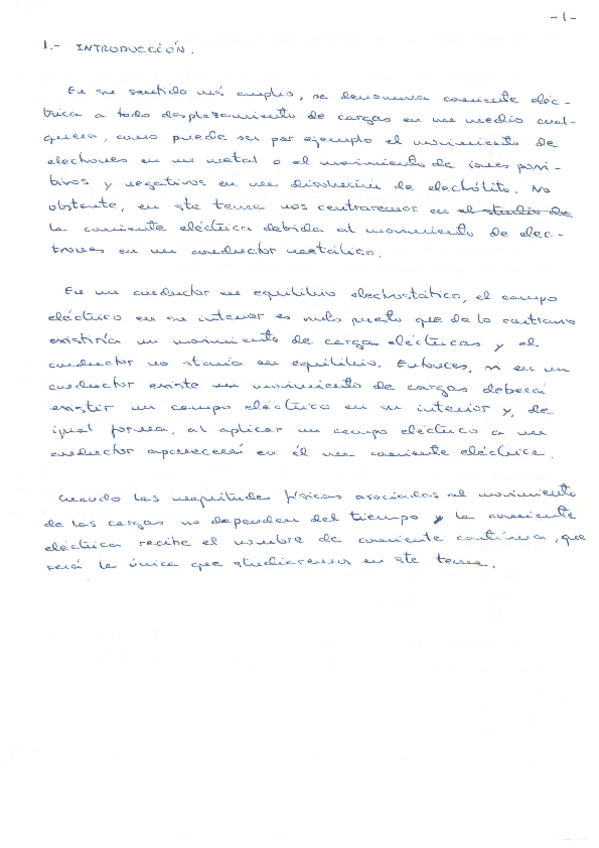 -1-
1.- INTRODUCCIÓN.
En su sentido más amplio, se denomina corriente eléc-
trica a todo desplazamiento de cargas en un medio cual-
quiera, como puede ser por ejemplo el movimiento de
electrones en un metal o el movimiento de iones posi-
tivos y negativos en una disolución de electrólito. No
obstante, en este tema nos centraremos en el studio de
la corriente eléctrica debida al movimiento de elec-
trones en un conductor metálico.
En un conductor en equilibrio electrostático, el campo
eléctrico en su interior es nulo puesto que de lo contrario
existiría un movimiento de carga eléctricas y el
conductor no staría en equilibrio. Entonces, si en un
conductor existe un movimiento de cargas deberá
existir un campo eléctrico en su interior y, de
igual forma, al aplicar un campo eléctrico a un
conductor aparecerá en él una corriente eléctrica.
Cuando las magnitudes físicas asociadas al movimiento
de las cargas no dependen del tiempo y la corriente
eléctrica recibe el nombre de corriente contínua, que
será la única que studiaremos en este tema.